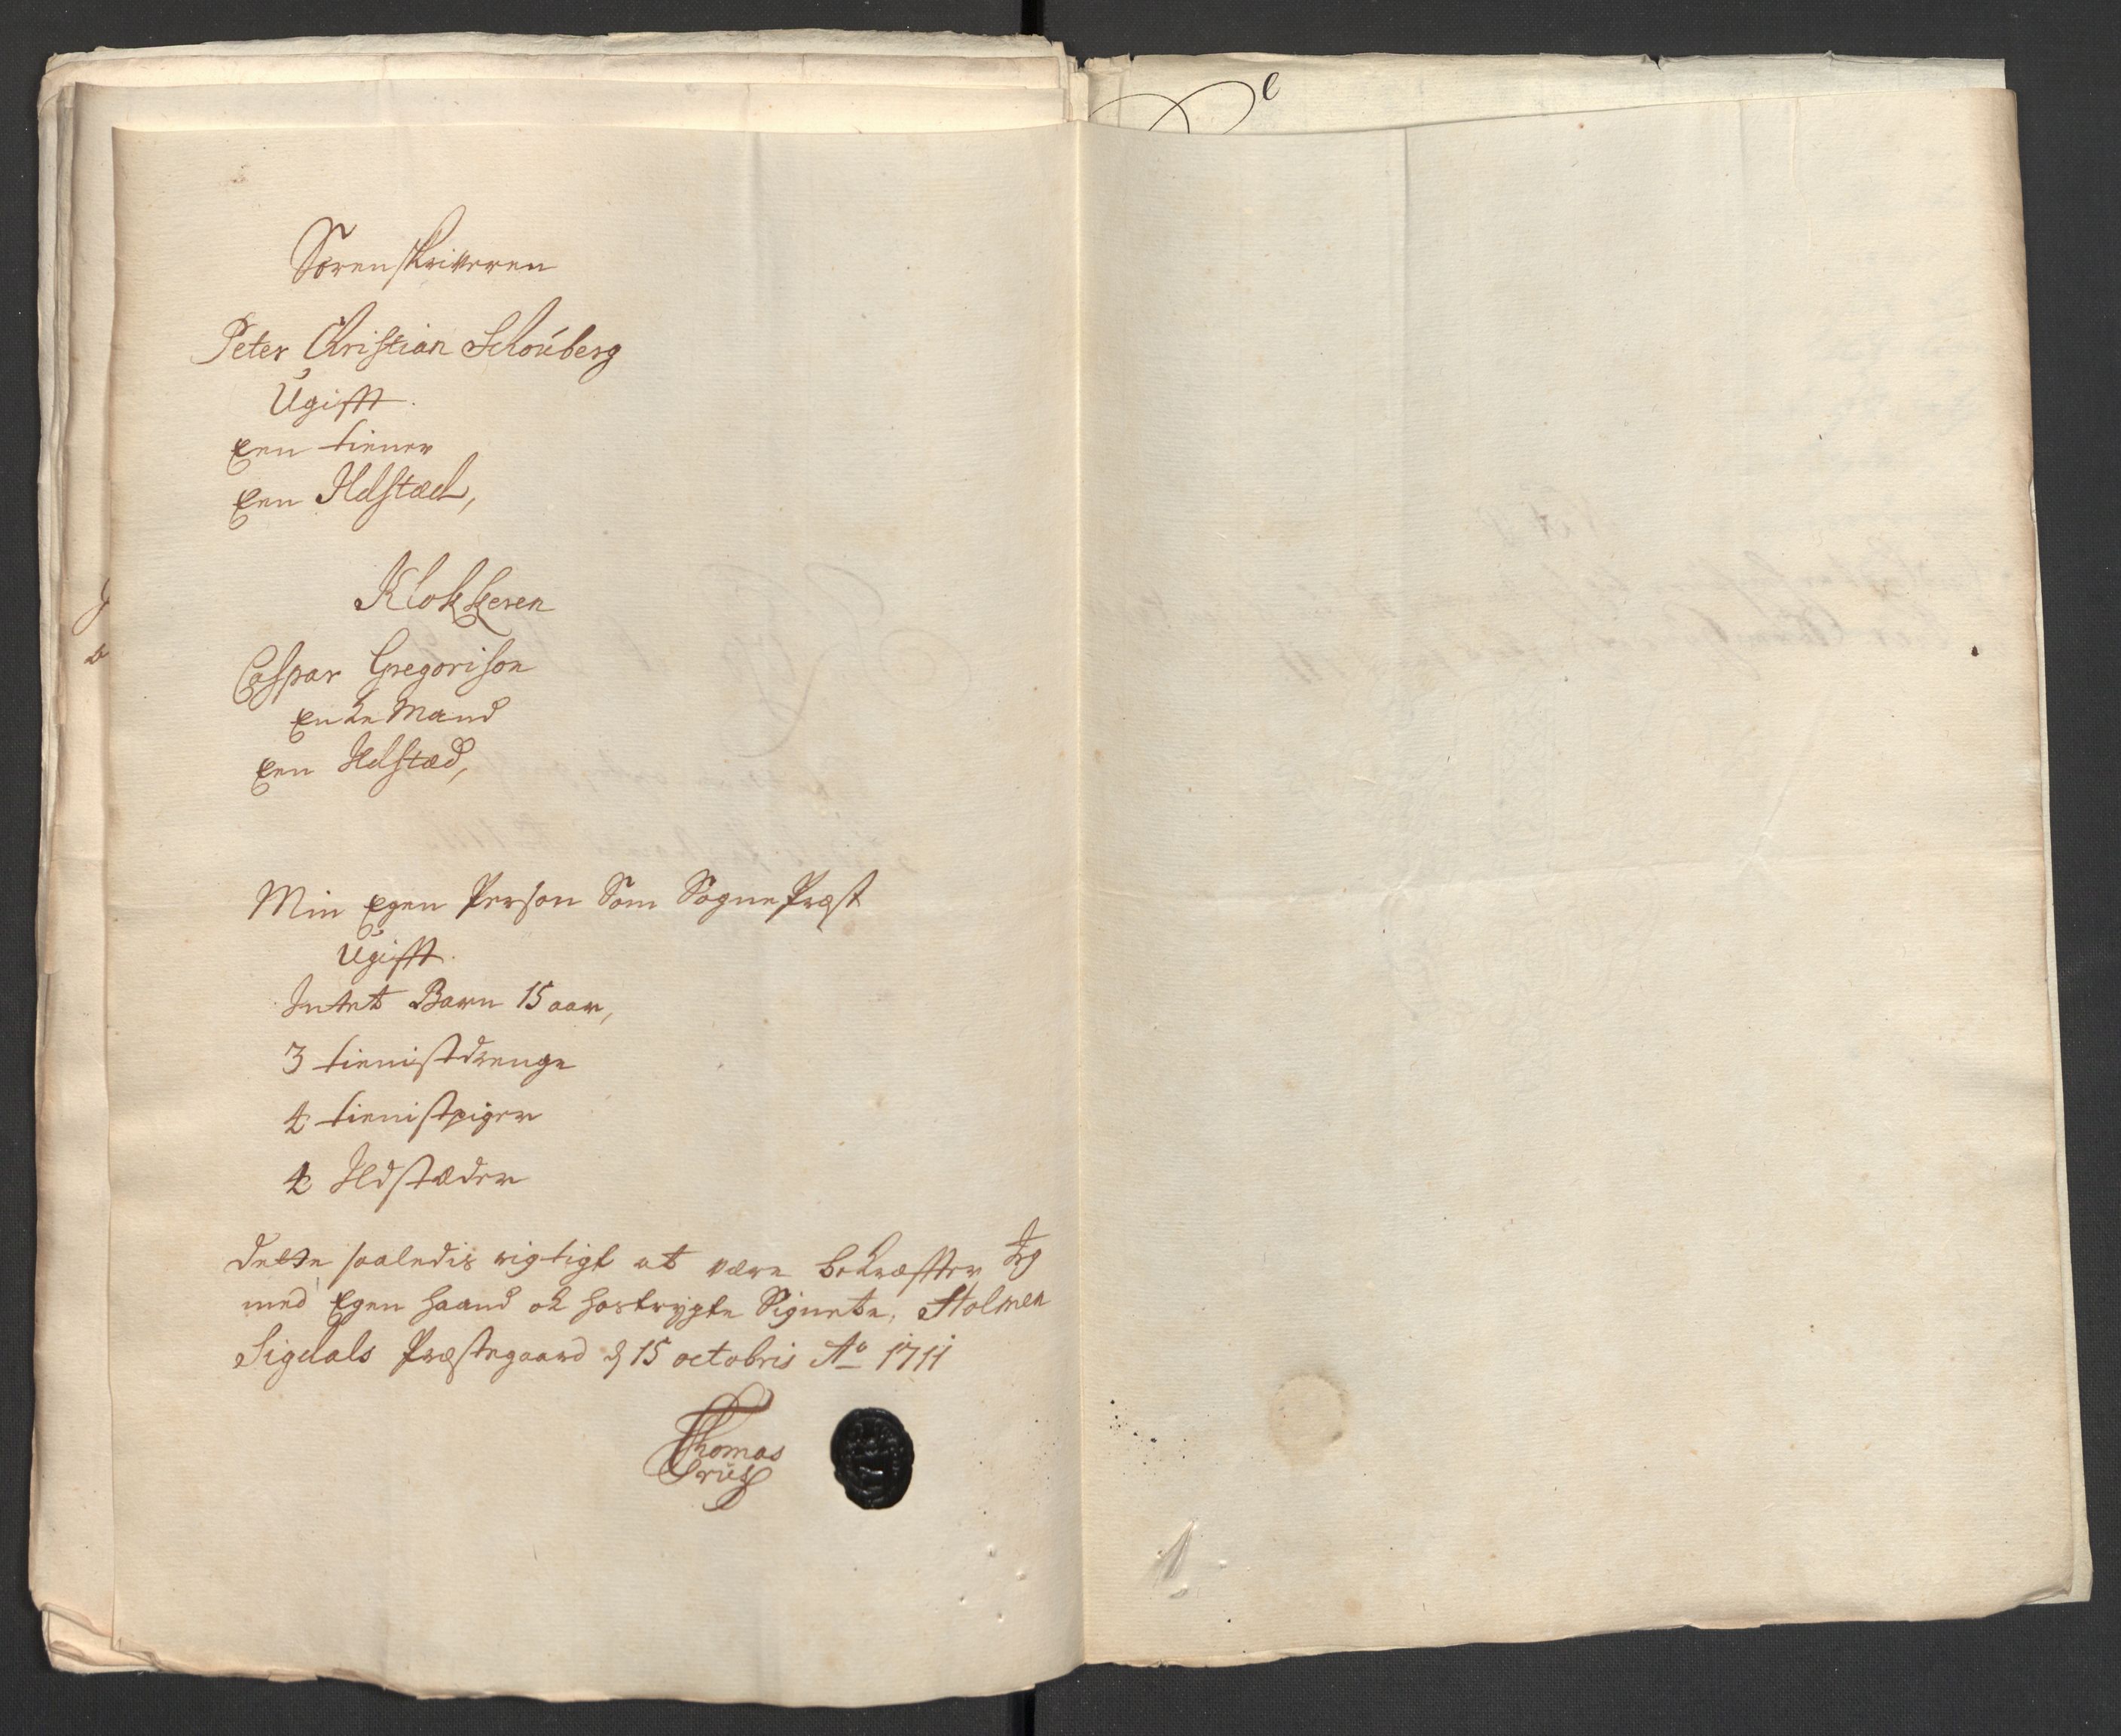 Sorenskriveren
Peter Christian Schoúberg
Ugifft.
Een tiener
Een Ildstæd,
Klokkeren
Caspar Gregorison
Enke Mand
Een Ildstæd,
Min Egen Person Som Sogne Præst
Ugifft.
Intet Barn 15 aar,
3 tienistdrenge
4 tienistpiger
4 Ildstæder
Dette saaledis rigtigt at være bekræffter Jeg
med Egen haand ok hostrygte Signete, Holmen
Sigdals Præstegaard d 15 octobris Ao 1711
Thomas